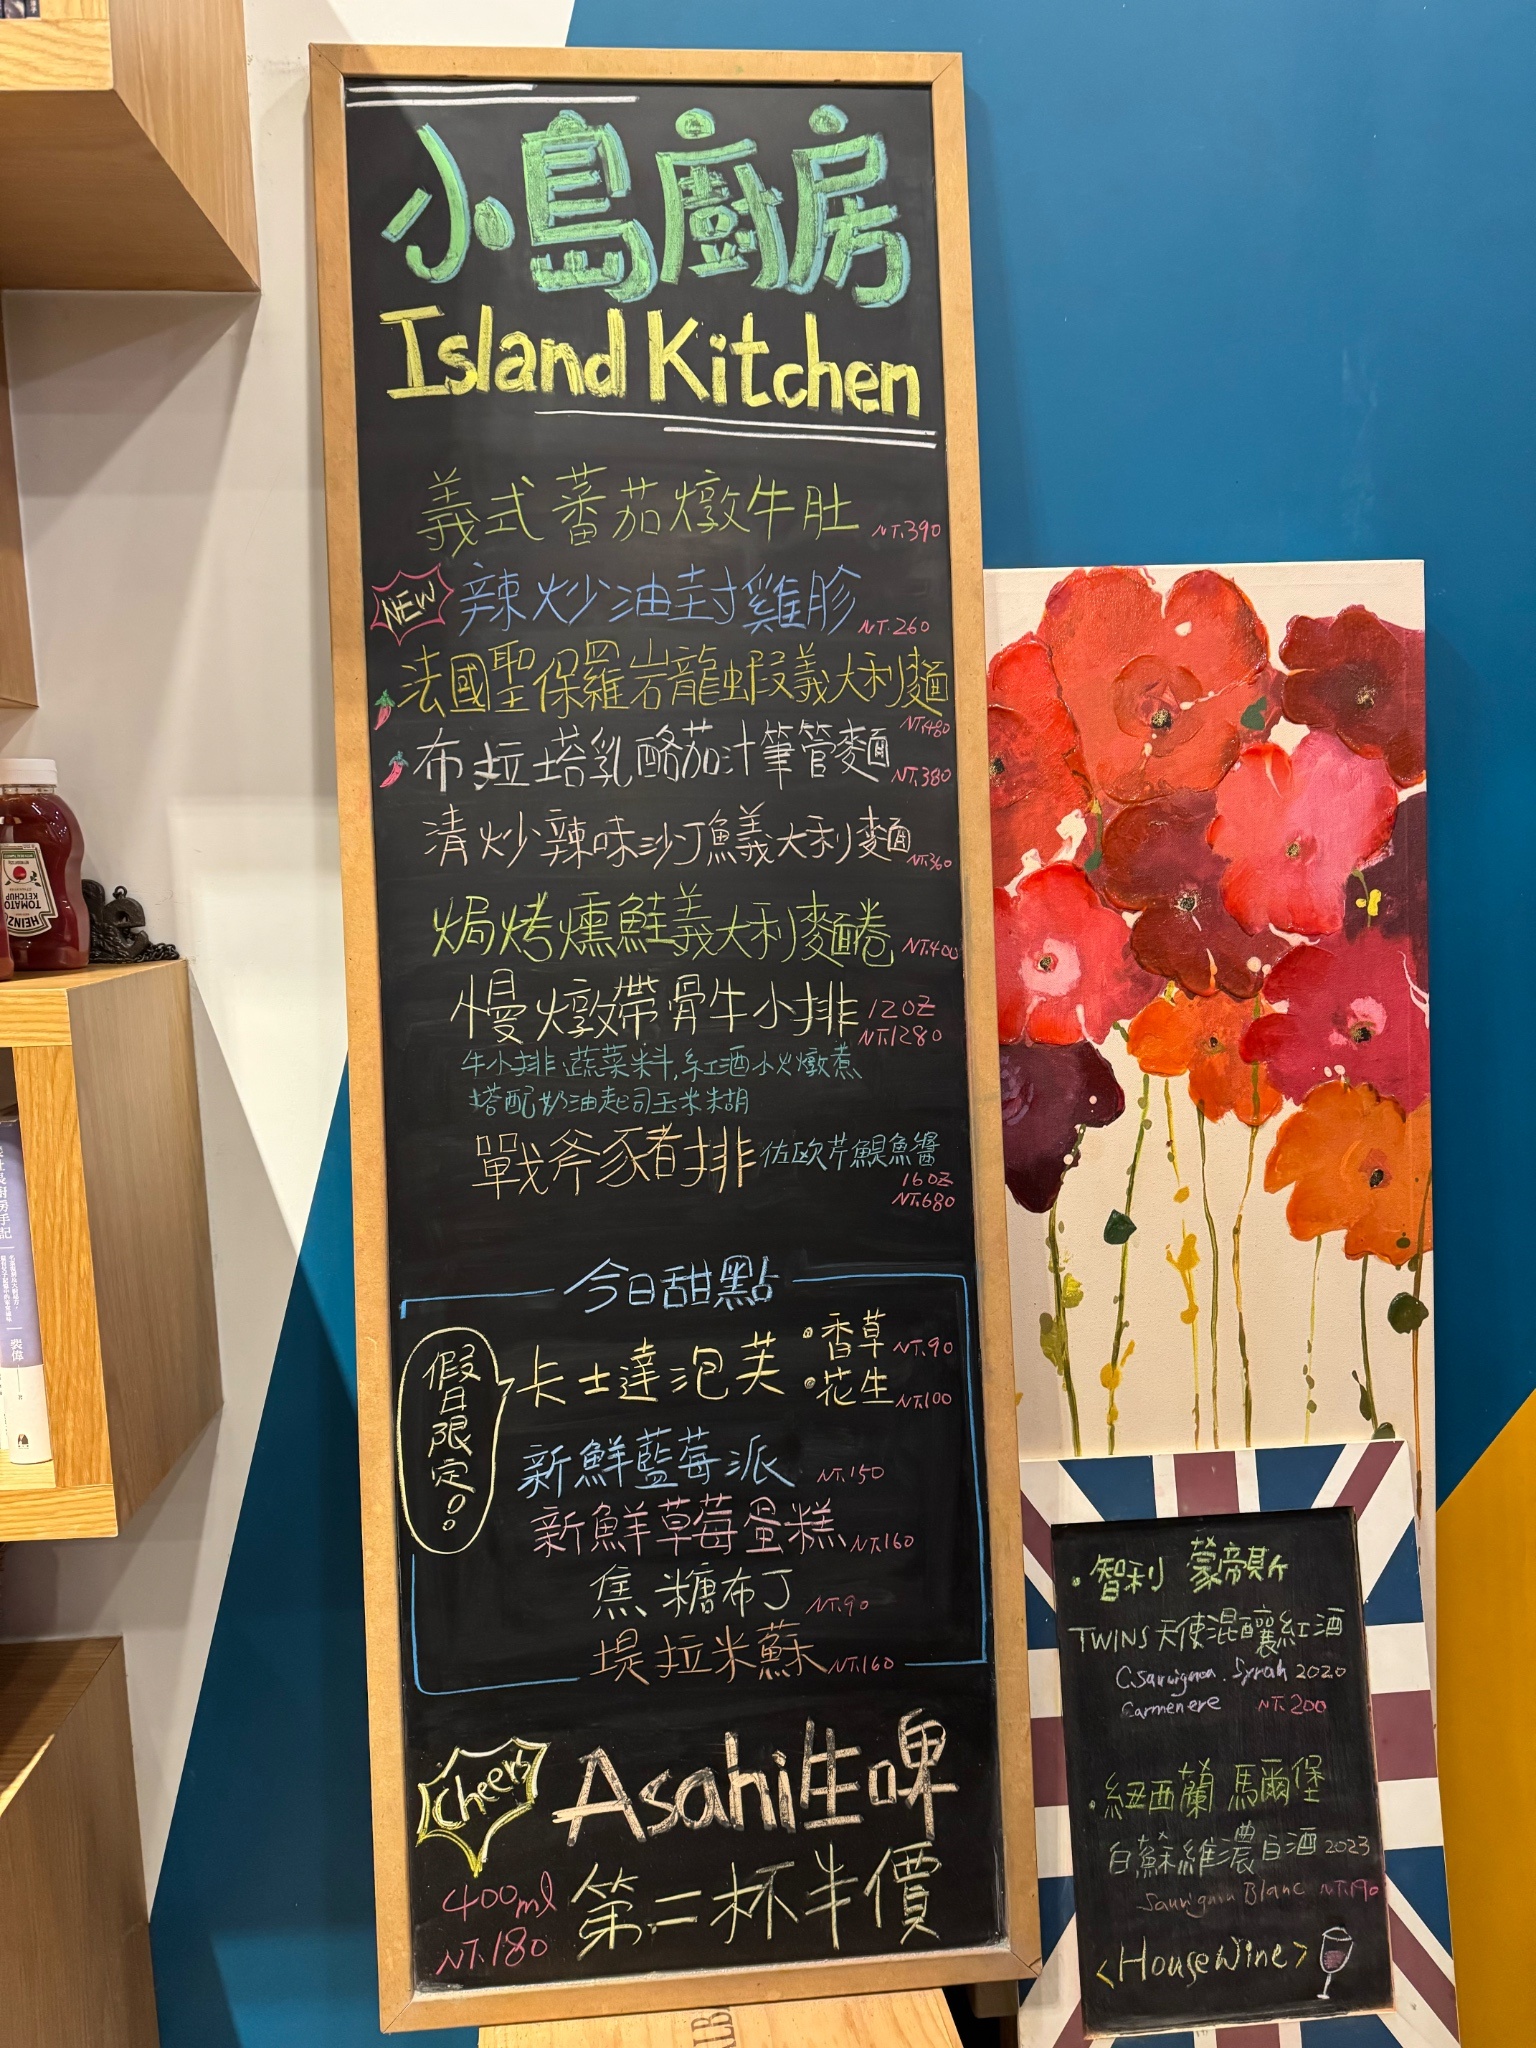 小島廚房
Island Kitchen
義式蕃茄燉牛肚 NT.390
NEW 辣炒油封雞胗 NT.260
法國聖保羅岩龍蝦義大利麵 NT.480
布拉塔乳酪茄汁筆管麵 NT.380
清炒辣味沙丁魚義大利麵 NT.360
焗烤燻鮭義大利麵捲 NT.400
慢燉帶骨牛小排 12OZ
NT.1280
牛小排.蔬菜料,紅酒小火燉煮
搭配奶油起司玉米糊
戰斧豬排 佐歐芹鯷魚醬
16OZ
NT.680
今日甜點
假日限定。。。
卡士達泡芙
香草 NT.90
花生 NT.100
新鮮藍莓派 NT.150
新鮮草莓蛋糕 NT.160
焦糖布丁 NT.90
堤拉米蘇 NT.160
Cheers
Asahi生啤
第二杯半價
400ml
NT.180
智利 蒙帝斯
TWINS 天使混釀紅酒
C.Sauvignon. Syrah 2020
Carmenere NT.200
紐西蘭 馬爾堡
白蘇維濃白酒 2023
Sauvignon Blanc NT.190
<House Wine>
HEINZ
TOMATO
KETCHUP
裴偉